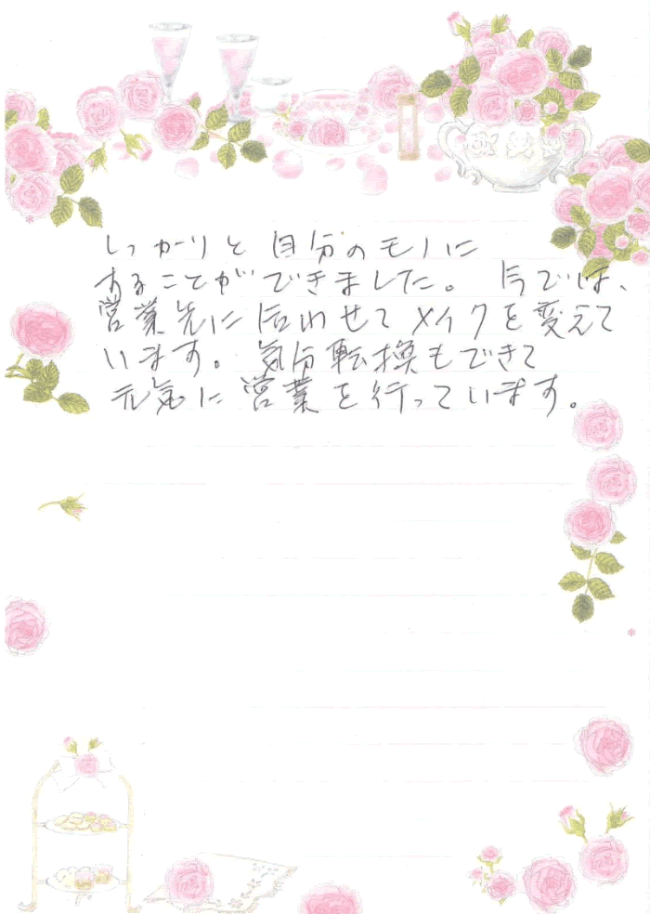 しっかりと自分のモノに
することができました。 今では、
営業先に合わせてメイクを変えて
います。気分転換もできて
元気に営業を行っています。